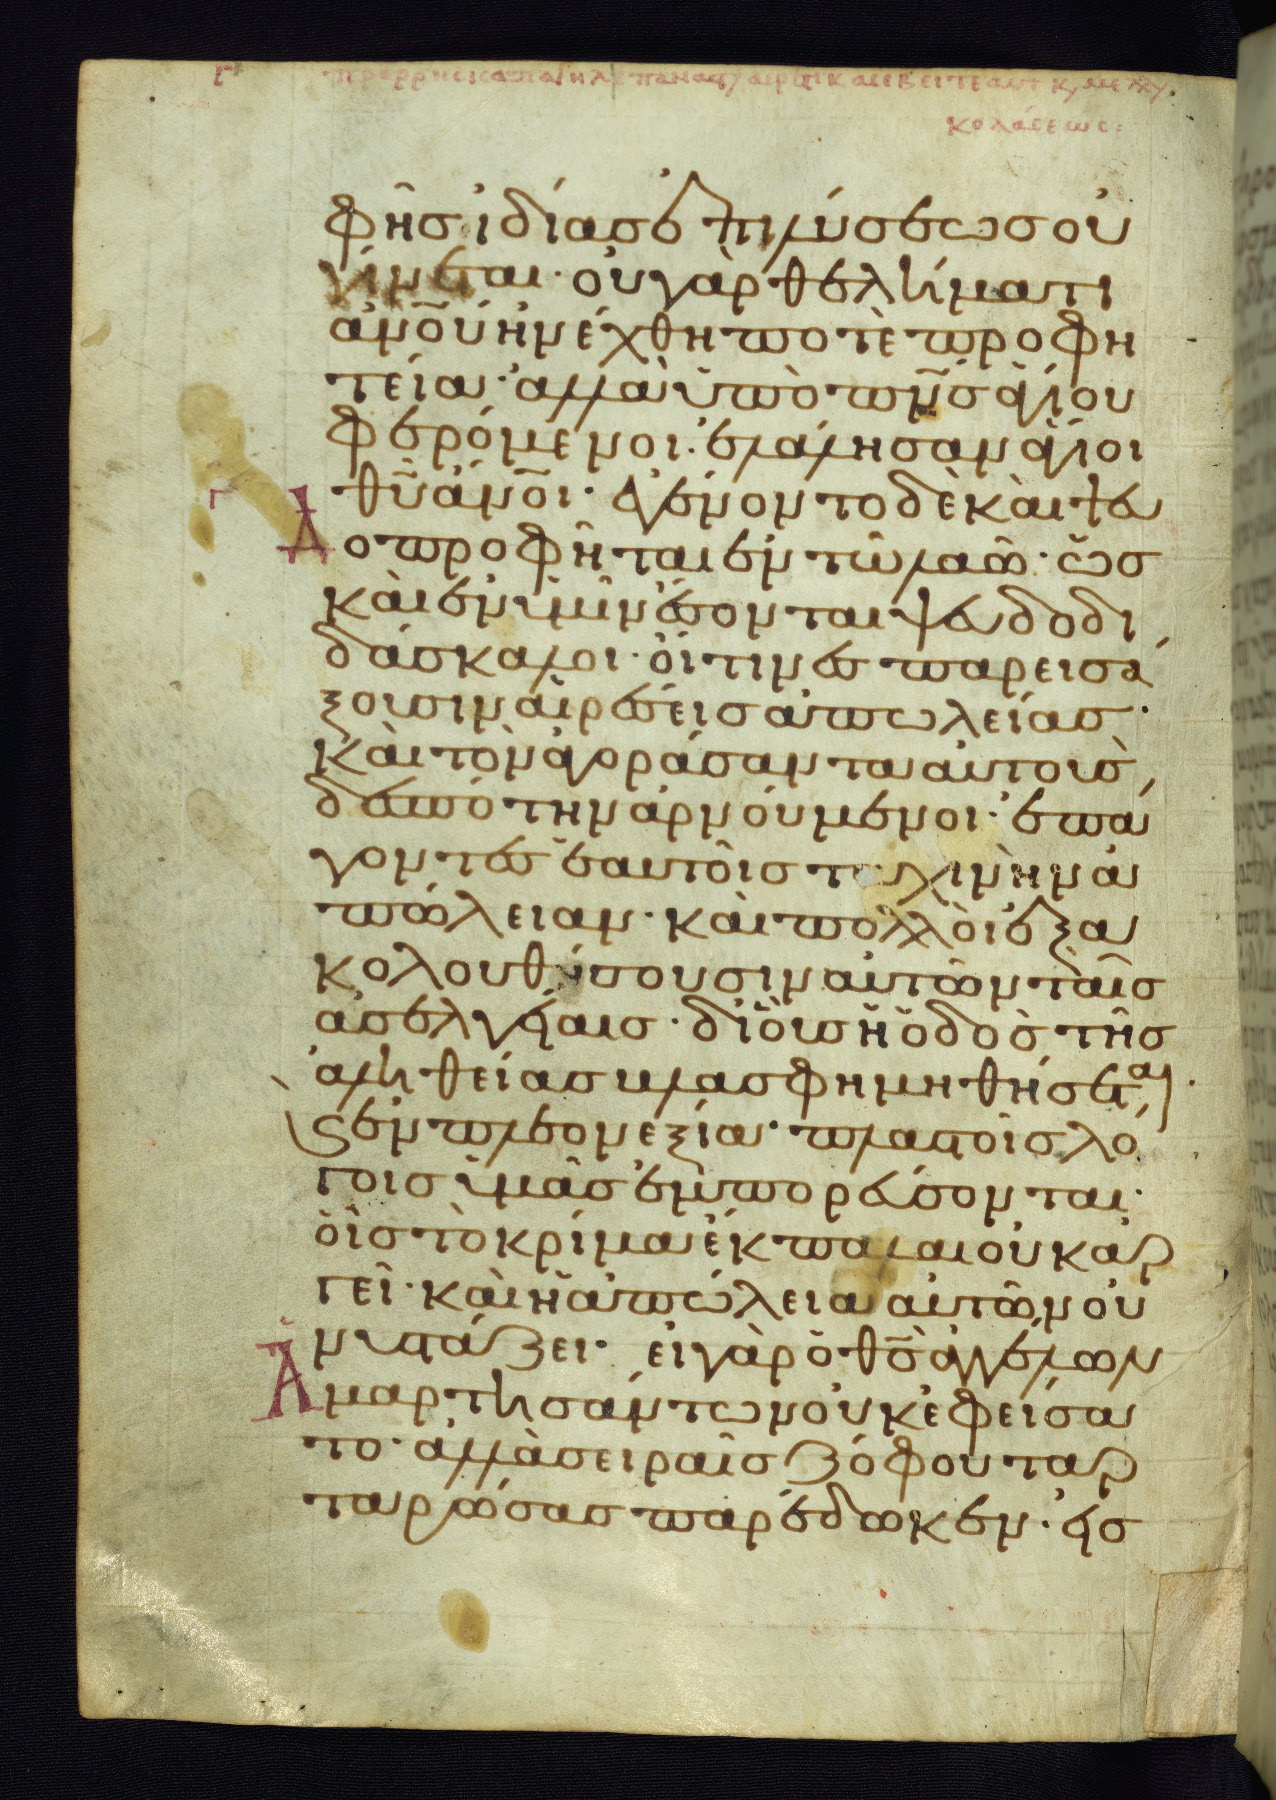 γ
κολάσεως:
φῆς ἰδίας ἐπιλύσεως οὐ
γίνεται· οὐ γὰρ θελήματι
ἀνο̅υ ἠνέχθη ποτὲ προφη
τεία· ἀλλὰ ὑπὸ πν̅ς ἁγίου
φερόμενοι· ἐλάλησαν ἅγιοι
θυ̅ ἀνο̅ι· ἐγένοντο δὲ καὶ ψευ
γ
Δοπροφῆται ἐν τῶ λαῶ· ὡς
καὶ ἐν ὑμῖν ἔσονται ψευδοδι
δάσκαλοι· οἵτινες παρεισά
ξουσιν αἱρέσεις ἀπωλείας·
καὶ τὸν ἀγοράσαντα αὐτοὺς
δεσπότην ἀρνούμενοι· ἐπά
γοντες ἑαυτοῖς ταχινὴν ἀ
πώλειαν· καὶ πολλοὶ ἐξα
κολουθήσουσιν αὐτῶν ταῖς
ἀσελγείαις· δι οὓς ἡ ὁδὸς τῆς
ἀληθείας βλασφημηθήσεται·
ϛ ἐν πλεονεξία· πλαστοῖς λό
γοις ὑμᾶς ἐμπορεύσονται·
οἷς τὸ κρίμα ἔκπαλαι οὐκ ἀρ
γεῖ· καὶ ἡ ἀπώλεια αὐτῶν οὐ
νυστάζει· εἰ γὰρ ὁ θς̅ ἀγγέλων
Ἁμαρτησάντων οὐκ ἐφείσα
το· ἀλλὰ σειραῖς ζόφου ταρ
ταρώσας παρέδωκεν· εἰς